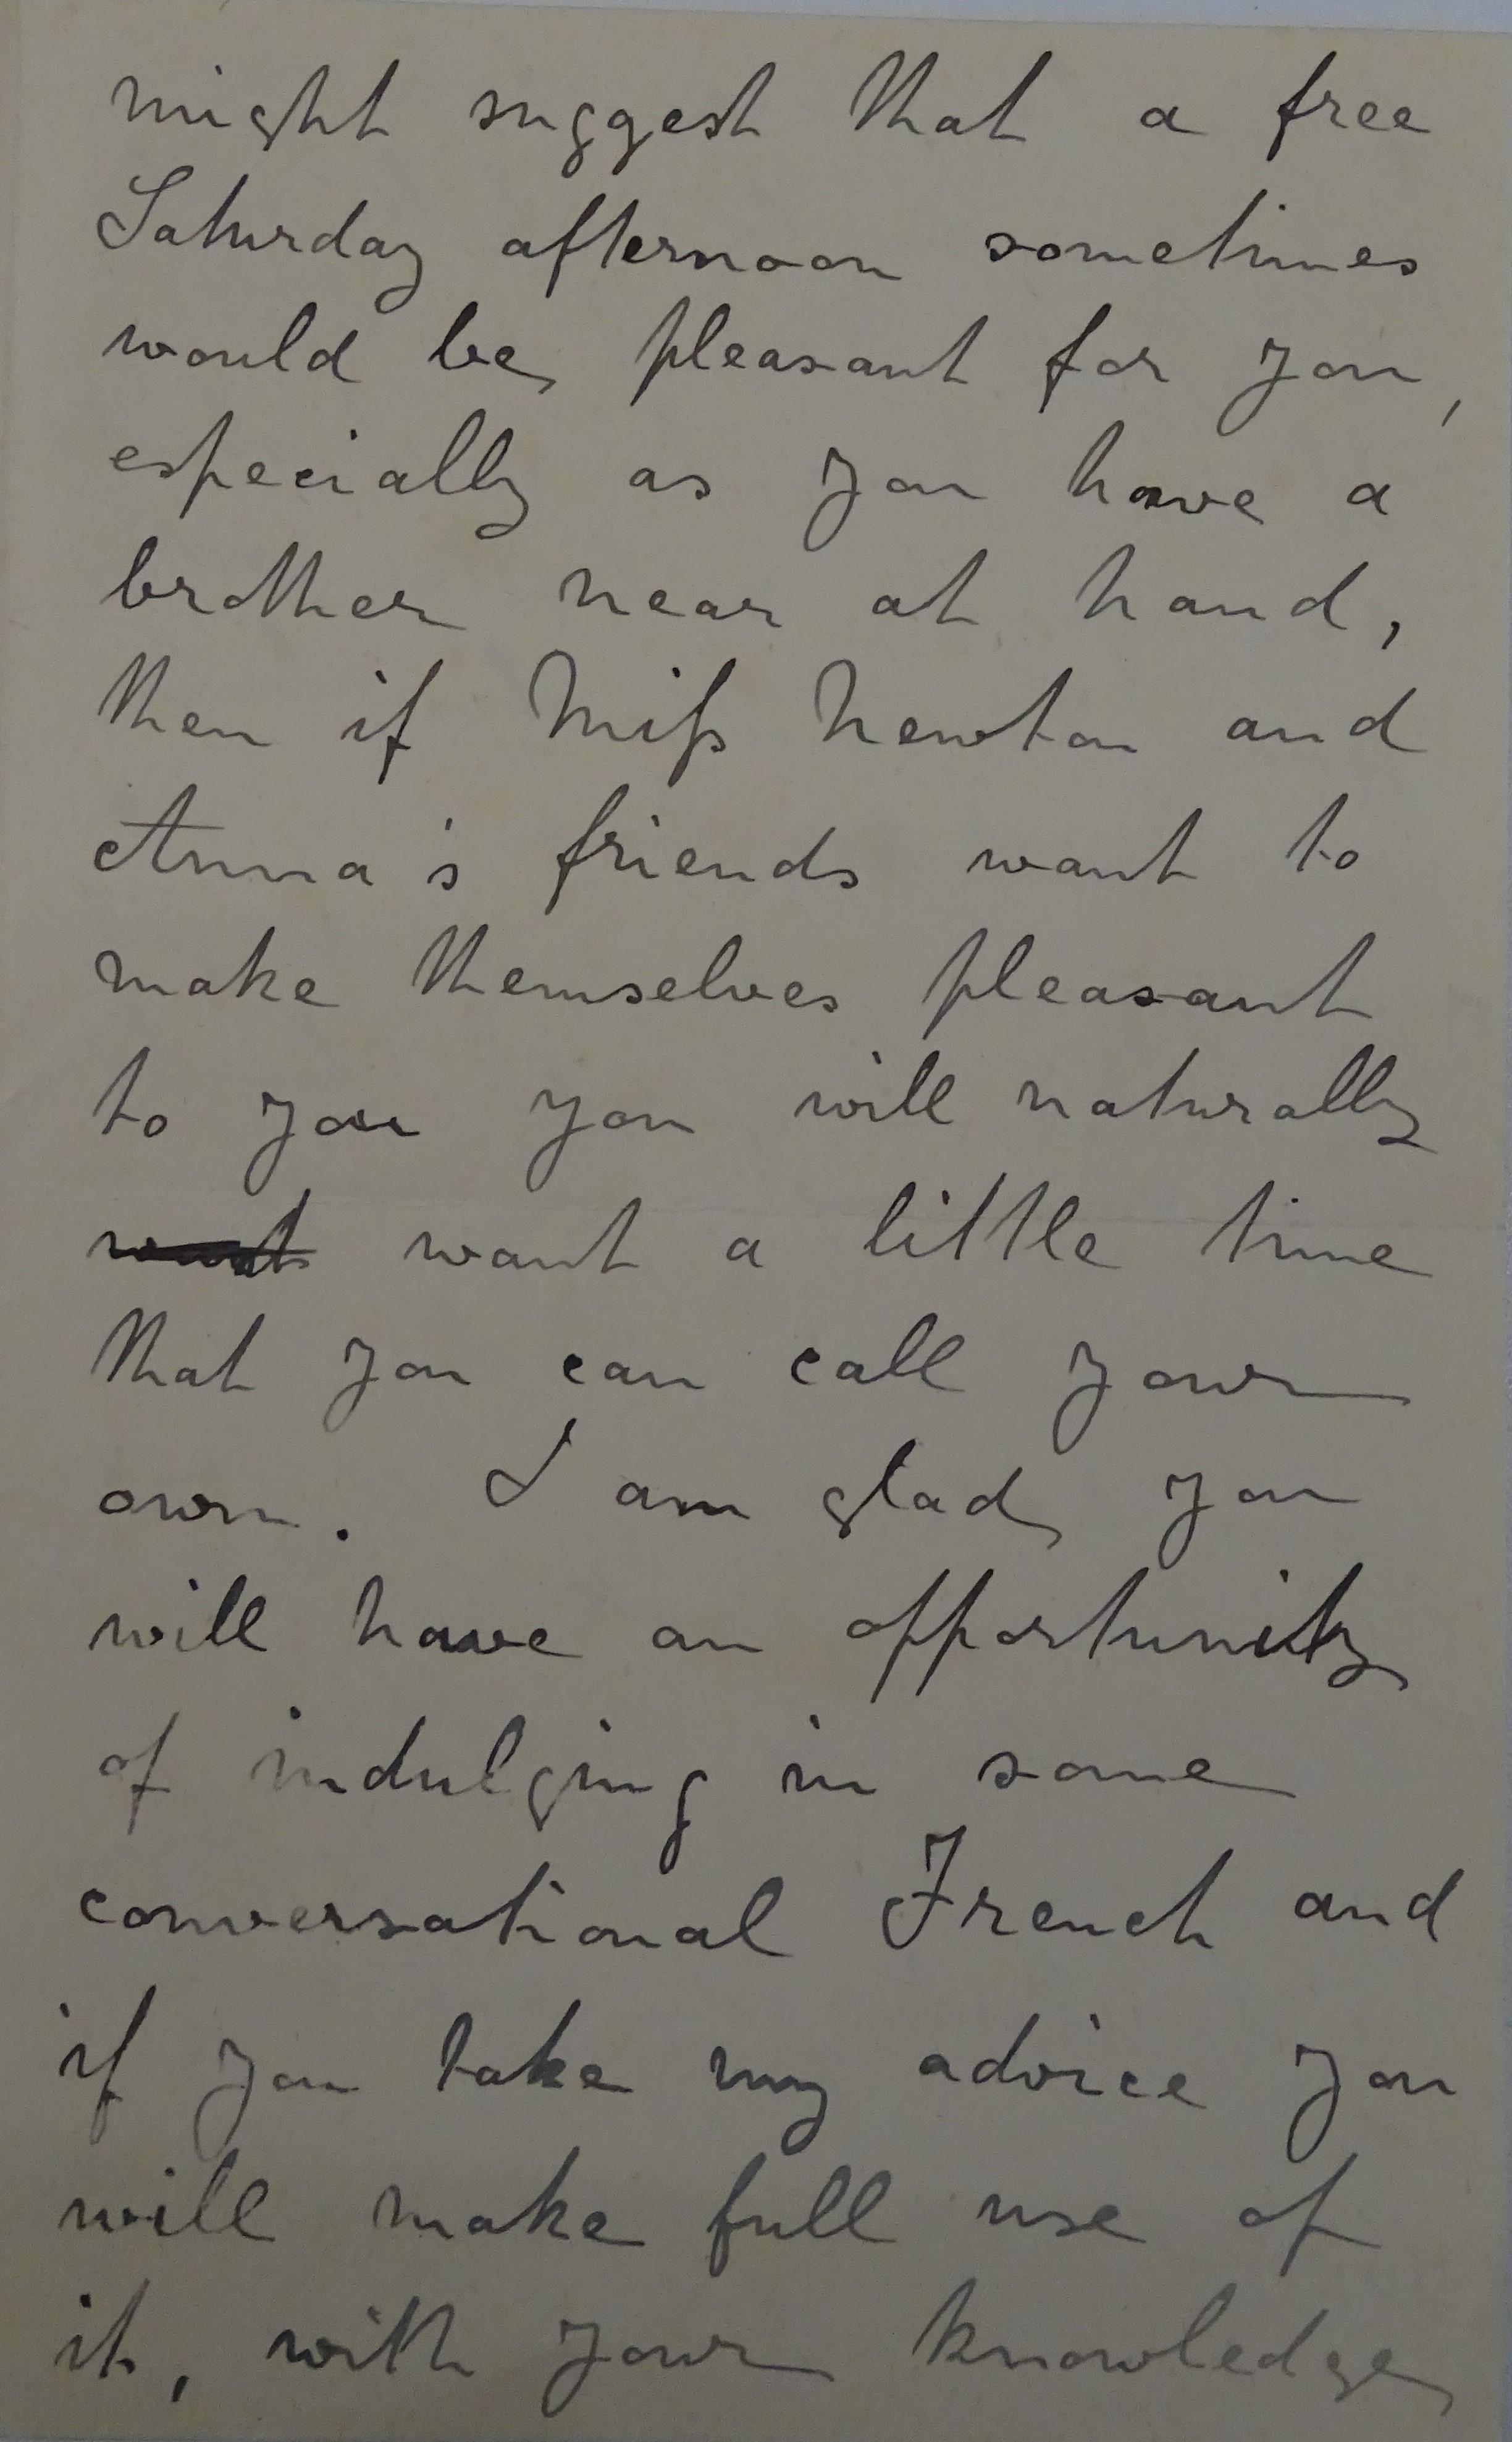 might suggest that a free
Saturday afternoon sometimes
would be pleasant for you,
especially as you have a
brother near at hand,
then if Miſs Newton and
Anna's friends want to
make themselves pleasant
to you you will naturally
want want a little time
that you can call your
own. I am glad you
will have an opportunity
of indulging in some
conversational French and
if you take my advice you
will make full use of
it, with your knowledge